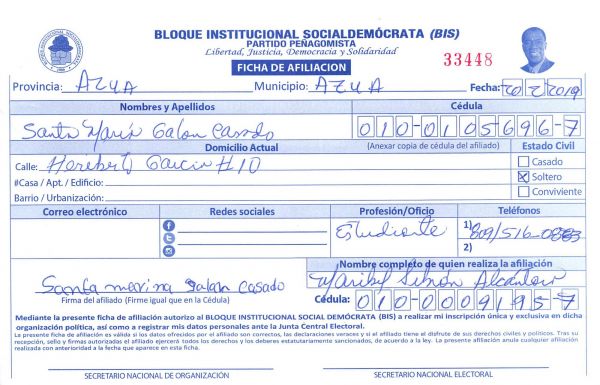 BLOQUE INSTITUCIONAL SOCIALDEMÓCRATA (BIS)
PARTIDO PEÑAGOMISTA
Libertad, Justicia, Democracia y Solidaridad
33448
FICHA DE AFILIACION
Provincia: AZUA Municipio: AZUA Fecha: 20/2/2019
Nombres y Apellidos Cédula
Santa María Galan Casado 010-0105696-7
Domicilio Actual (Anexar copia de cédula del afiliado) Estado Civil
Calle: Heriberto Garcia #10 Casado
#Casa / Apt. / Edificio: X Soltero
Barrio / Urbanización: Conviviente
Correo electrónico Redes sociales Profesión/Oficio Teléfonos
Estudiante 1) 809/516-0883
2)
Nombre completo de quien realiza la afiliación
Santa marina galan casado Alcantara
Firma del afiliado (Firme igual que en la Cédula) Cédula: 010-0009195-7
Mediante la presente ficha de afiliación autorizo al BLOQUE INSTITUCIONAL SOCIAL DEMÓCRATA (BIS) a realizar mi inscripción única y exclusiva en dicha
organización política, así como a registrar mis datos personales ante la Junta Central Electoral.
La presente ficha de afiliación es válida si los datos ofrecidos por el afiliado son correctos, las declaraciones veraces y si el afiliado tiene el disfrute de sus derechos civiles y políticos. Tras su
recepción, sello y firmas autorizadas el afiliado ejercerá todos los derechos y los deberes estatutariamente sancionados, de acuerdo a la ley. La presente afiliación anula cualquier afiliación
realizada con anterioridad a la fecha que aparece en esta ficha.
SECRETARIO NACIONAL DE ORGANIZACIÓN SECRETARIO NACIONAL ELECTORAL